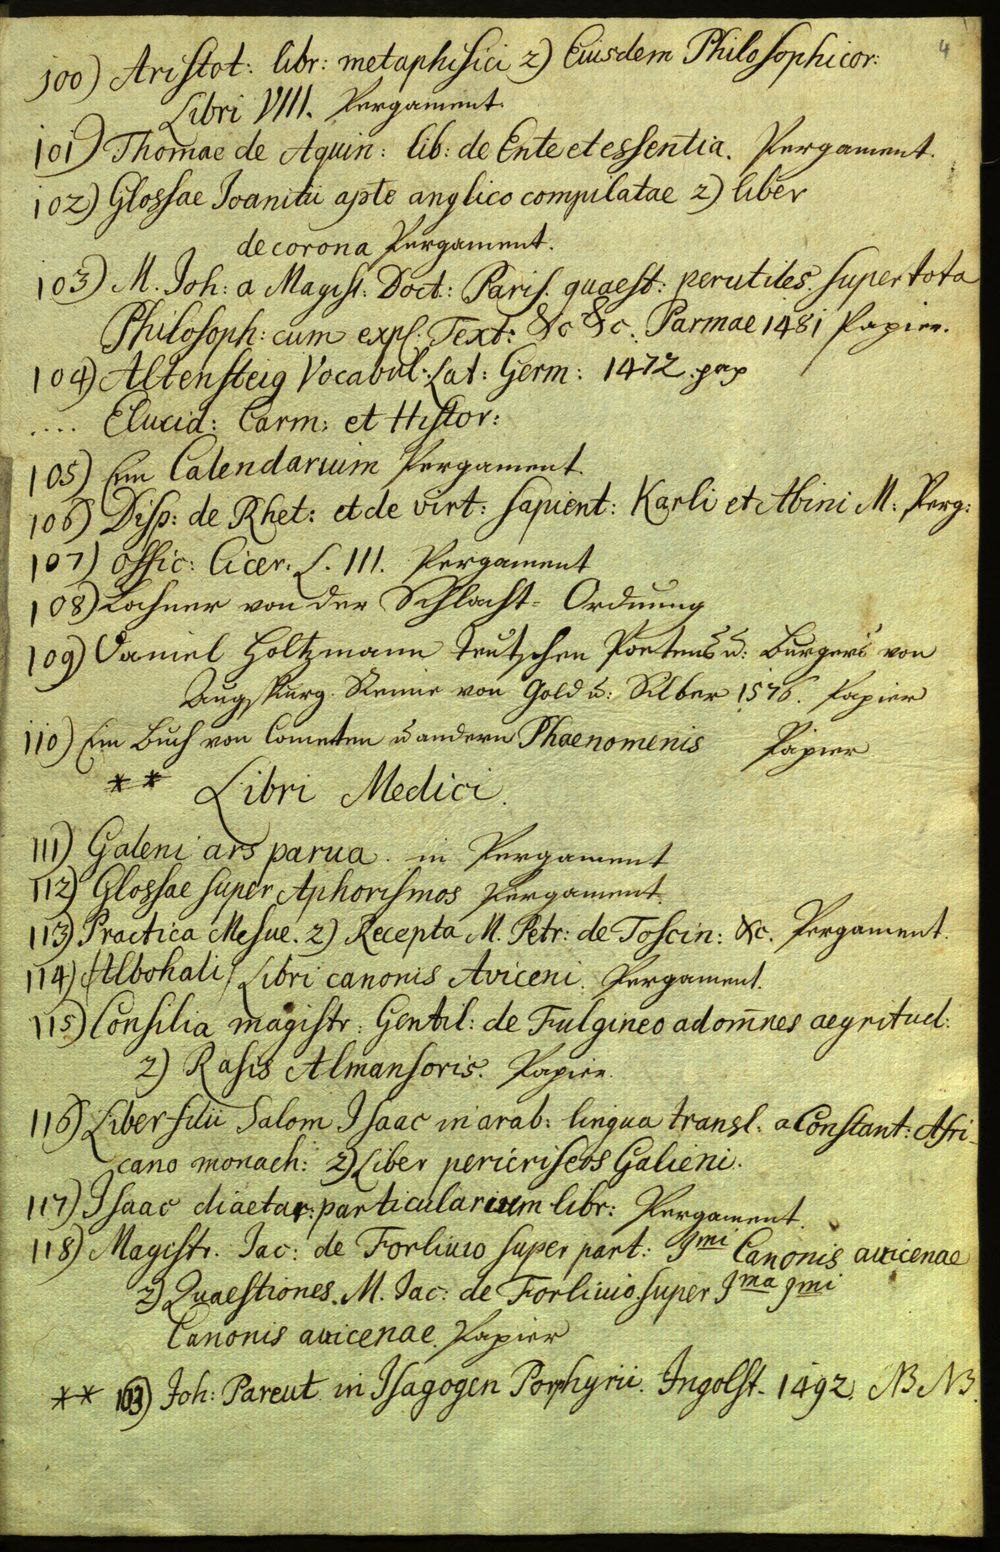 4
100) Aristot: libr: metaphisici 2) Eiusdem Philosophicor:
Libri VIII. Pergament.
101) Thomae de Aquin: lib: de Ente et essentia. Pergament.
102) Glossae Joanitii apte anglico compilatae 2) liber
de corona Pergament.
103) M. Joh: a Magist: Doct: Paris. quaest: perutiles super tota
Philosoph: cum expl. Text: &c &c. Parmae 1481 Papier.
104) Altensteig Vocabul: Lat: Germ: 1472. pap
.... Elucid: Carm: et Histor:
105) Ein Calendarium Pergament.
106) Disp: de Rhet: et de virt: sapient: Karli et Albini M: Perg:
107) Offic: Cicer. L. III. Pergament
108) Lochner von der Schlacht-Ordnung
109) Daniel Holtzmann teutschen Poetens u: Burgers von
Augspurg. Reime von Gold u: Silber 1576. Papier
110) Ein Buch von Cometen u andern Phaenomenis Papier
** Libri Medici.
111) Galeni ars parua. in Pergament
112) Glossae super Aphorismos Pergament.
113) Practica Mesue. 2) Recepta M. Petr: de Toscin: &c. Pergament.
114) (Albohali) Libri canonis Aviceni. Pergament.
115) Consilia magistr: Gentil: de Fulgineo ad om̅nes aegritud:
2) Rasis Almansoris. Papier.
116) Liber filii Salom Isaac in arab: lingua transl. a Constant: Afri-
cano monach: 2) Liber pericriseos Galieni.
117) Isaac diaetar: particularium libr: Pergament.
118) Magistr. Jac: de Forliuio super part: I^mi Canonis auicenae
2) Quaestiones. M. Jac: de Forliuio super I^ma I^mi
Canonis auicenae. Papier
** 103) Joh: Pareut in Isagogen Porphyrii. Ingolst. 1492. NB NB.